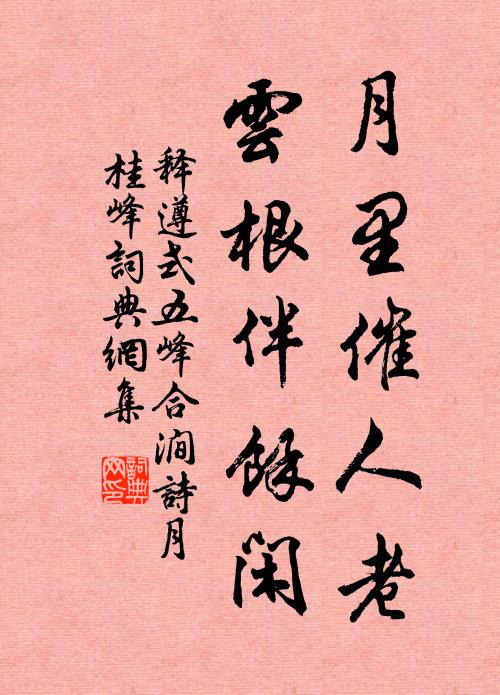 月里催人老
雲根伴餘闲
释遵式五峰合澗詩月
桂峰詞典網集
詞典网印